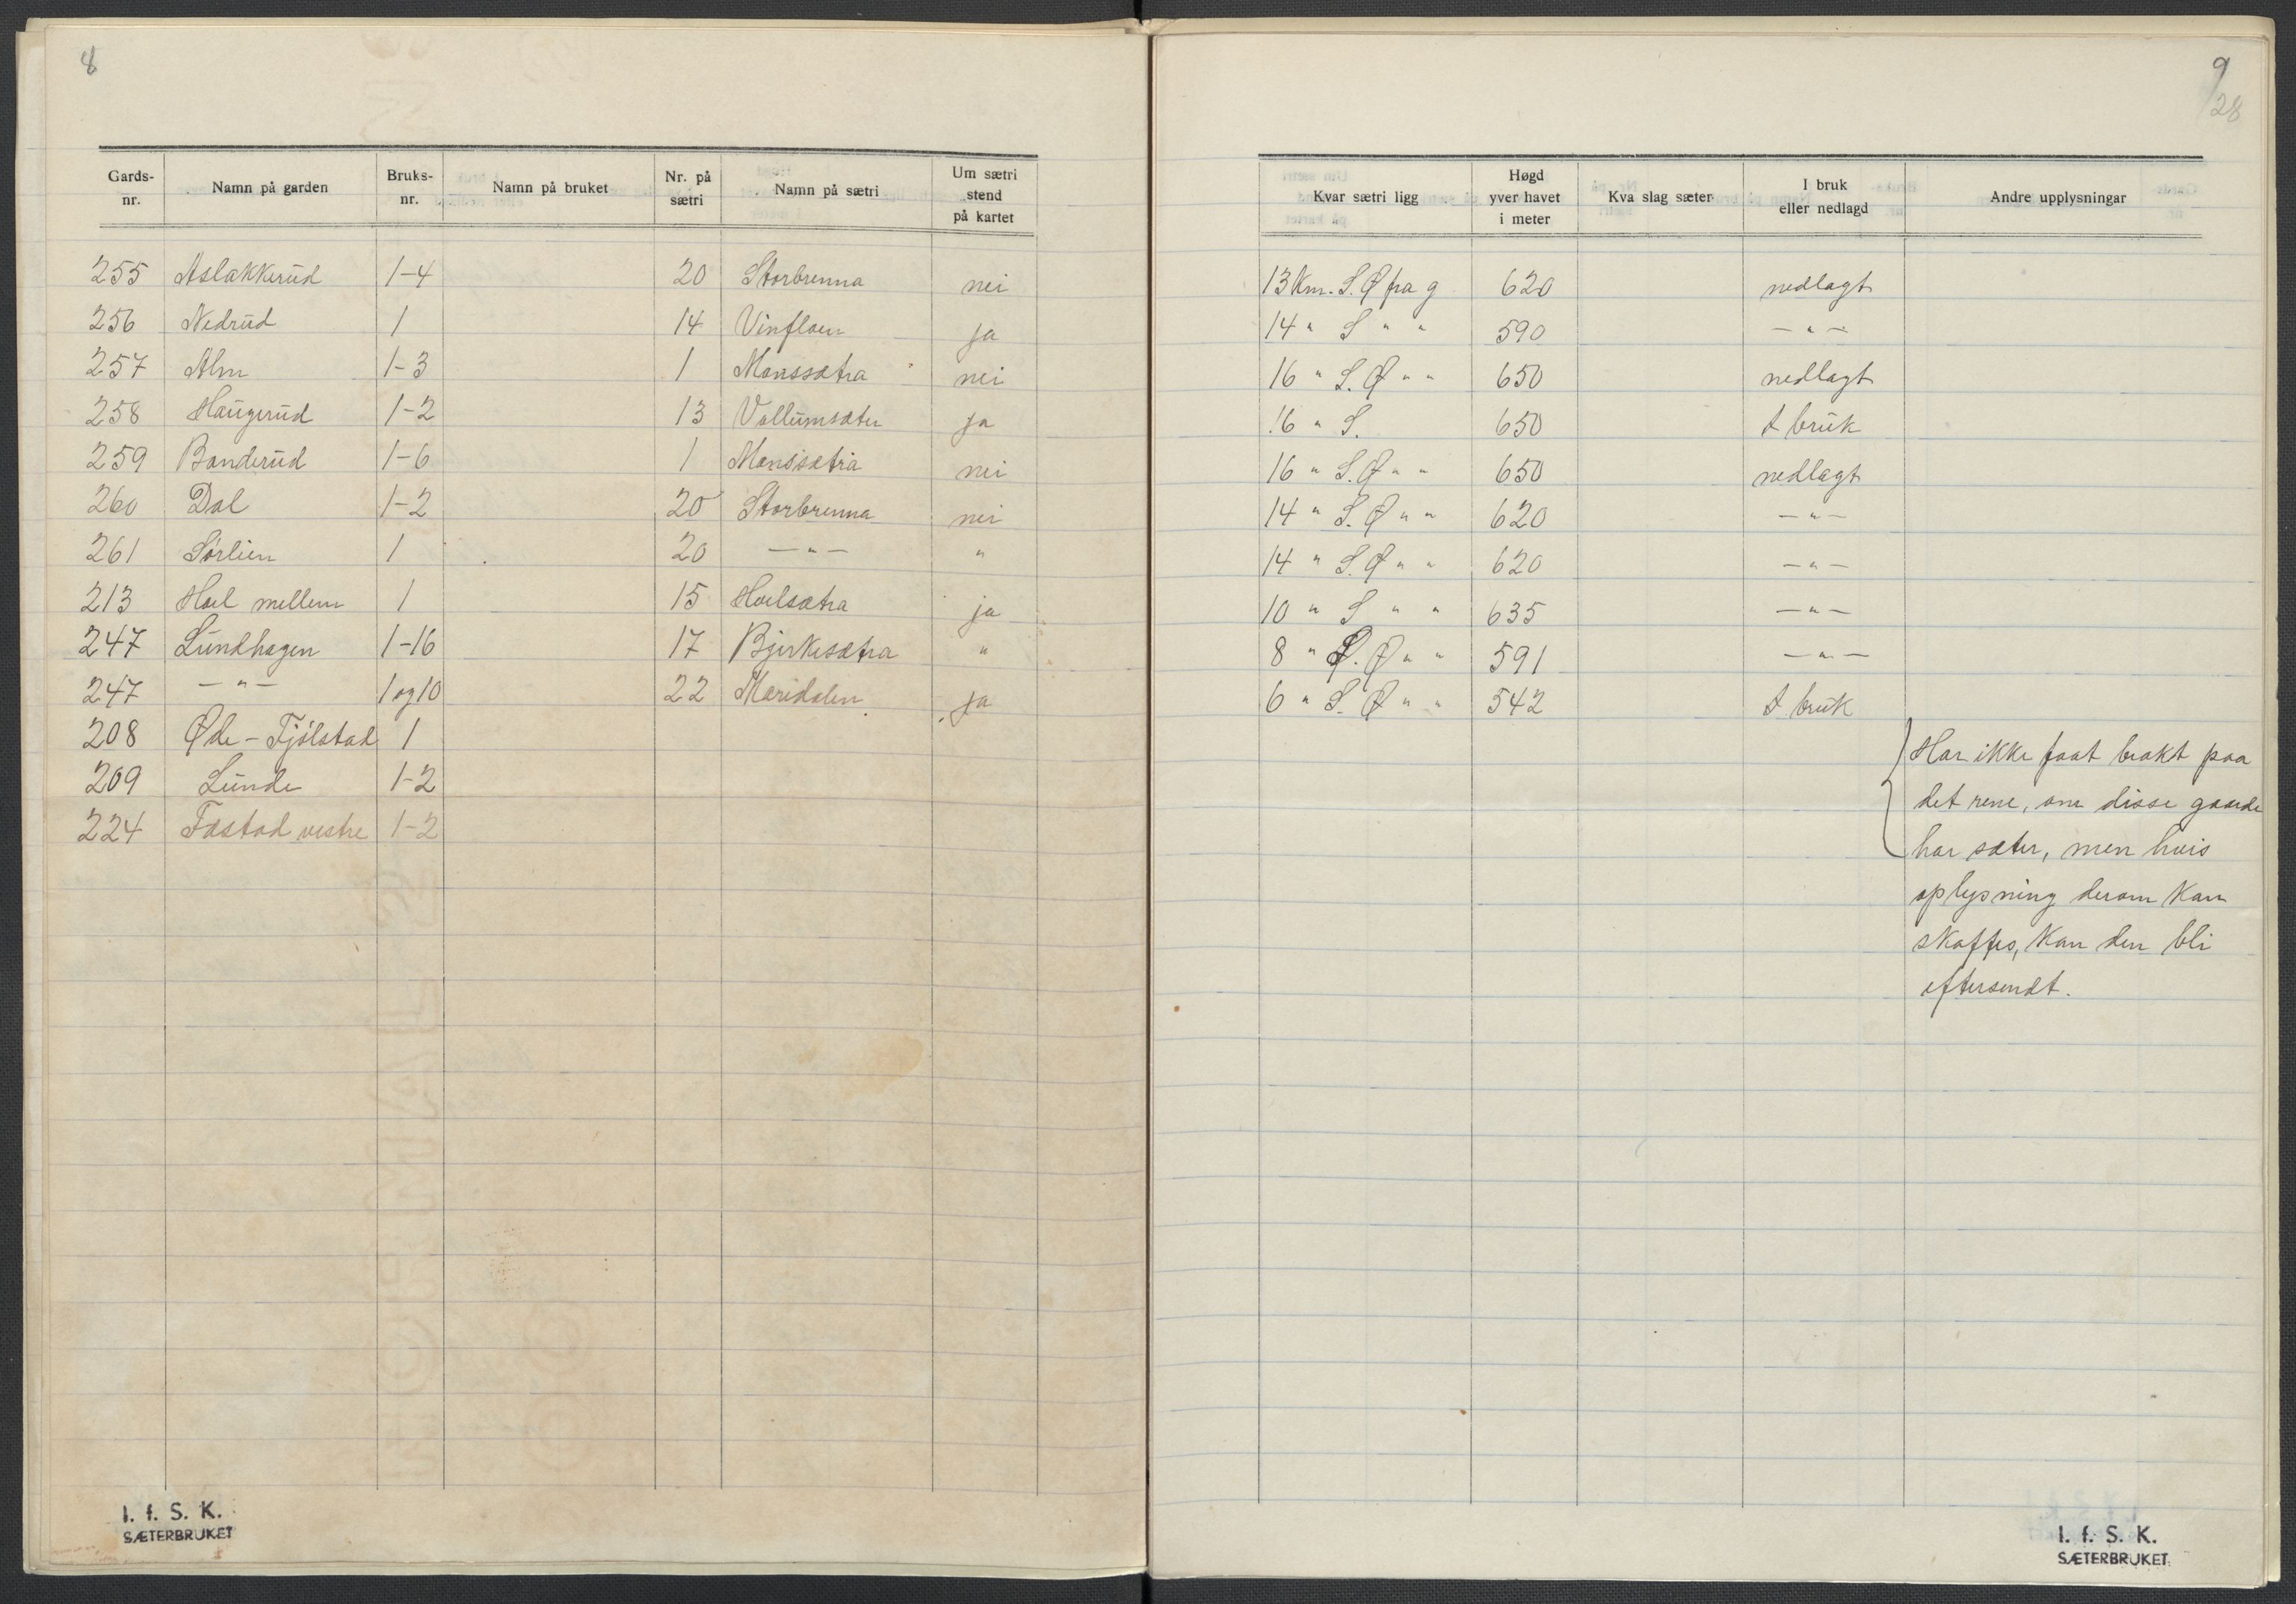 8
Gards-nr. Namn på garden Bruks-nr. Namn på bruket Nr. på sætri Namn på sætri Um sætri stend på kartet
255 Aslakkerud 1-4 20 Storbrenna nei
256 Nedrud 1 14 Vinfloen ja
257 Alm 1-3 1 Manssætra nei
258 Haugerud 1-2 13 Vollumsæter ja
259 Banderud 1-6 1 Manssætra nei
260 Dal 1-2 20 Storbrenna nei
261 Sørlien 1 20 -"- "
213 Hoel mellem 1 15 Hoelsætra ja
247 Lundhagen 1-16 17 Bjerkesætra "
247 -"- 1 og 10 22 Maridalen ja
208 Øde-Fjølstad 1
209 Lunde 1-2
224 Fæstad vestre 1-2
I. f. S. K.
SÆTERBRUKET
9
28
Kvar sætri ligg Høgd yver havet i meter Kva slag sæter I bruk eller nedlagd Andre upplysningar
13 Km. S.Ø fra g 620 nedlagt
14 " S " " 590 -"-
16 " S.Ø " " 650 nedlagt
16 " S. 650 I bruk
16 " S.Ø " " 650 nedlagt
14 " S.Ø " " 620 -"-
14 " S.Ø " " 620 -"-
10 " S " " 635 -"-
8 " S.Ø " " 591 -"-
6 " S.Ø " " 542 I bruk
Har ikke faat brakt paa
det rene, om disse gaarde
har sæter, men hvis
oplysning derom kan
skaffes, kan den bli
eftersendt.
I. f. S. K.
SÆTERBRUKET